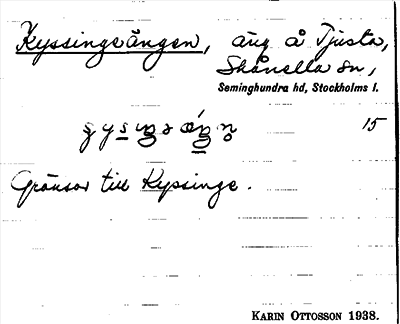 Kyssingeängen, äng å Tjusta,
Skånella sn,
Seminghundra hd, Stockholms l.
15
Gränsar till Kyssinge.
KARIN OTTOSSON 1938.